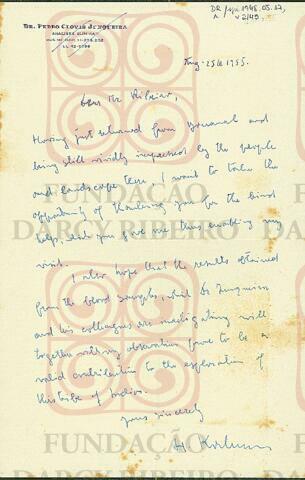 DR/
Dr. Pedro Clovis Junqueira
ANALISES CLINICAS
Aug. 25th 1955.
Dear Mr Ribeiro,
Having just returned from and
being still vividly impressed by the people
and landscape I want to take the
opportunity of thanking you for the kind
help, that you gave me thus enabling my
visit.
I also hope that the results obtained
from the blood samples, which Dr Junqueira
and his colleagues are investigating will
together with my observation prove to be a
valid contribution to the exploration of
this tribe of Indios.
Yours sincerely
FUNDAÇÃO
DARCY RIBEIRO
FUNDAÇÃO
DARCY RIBEIRO